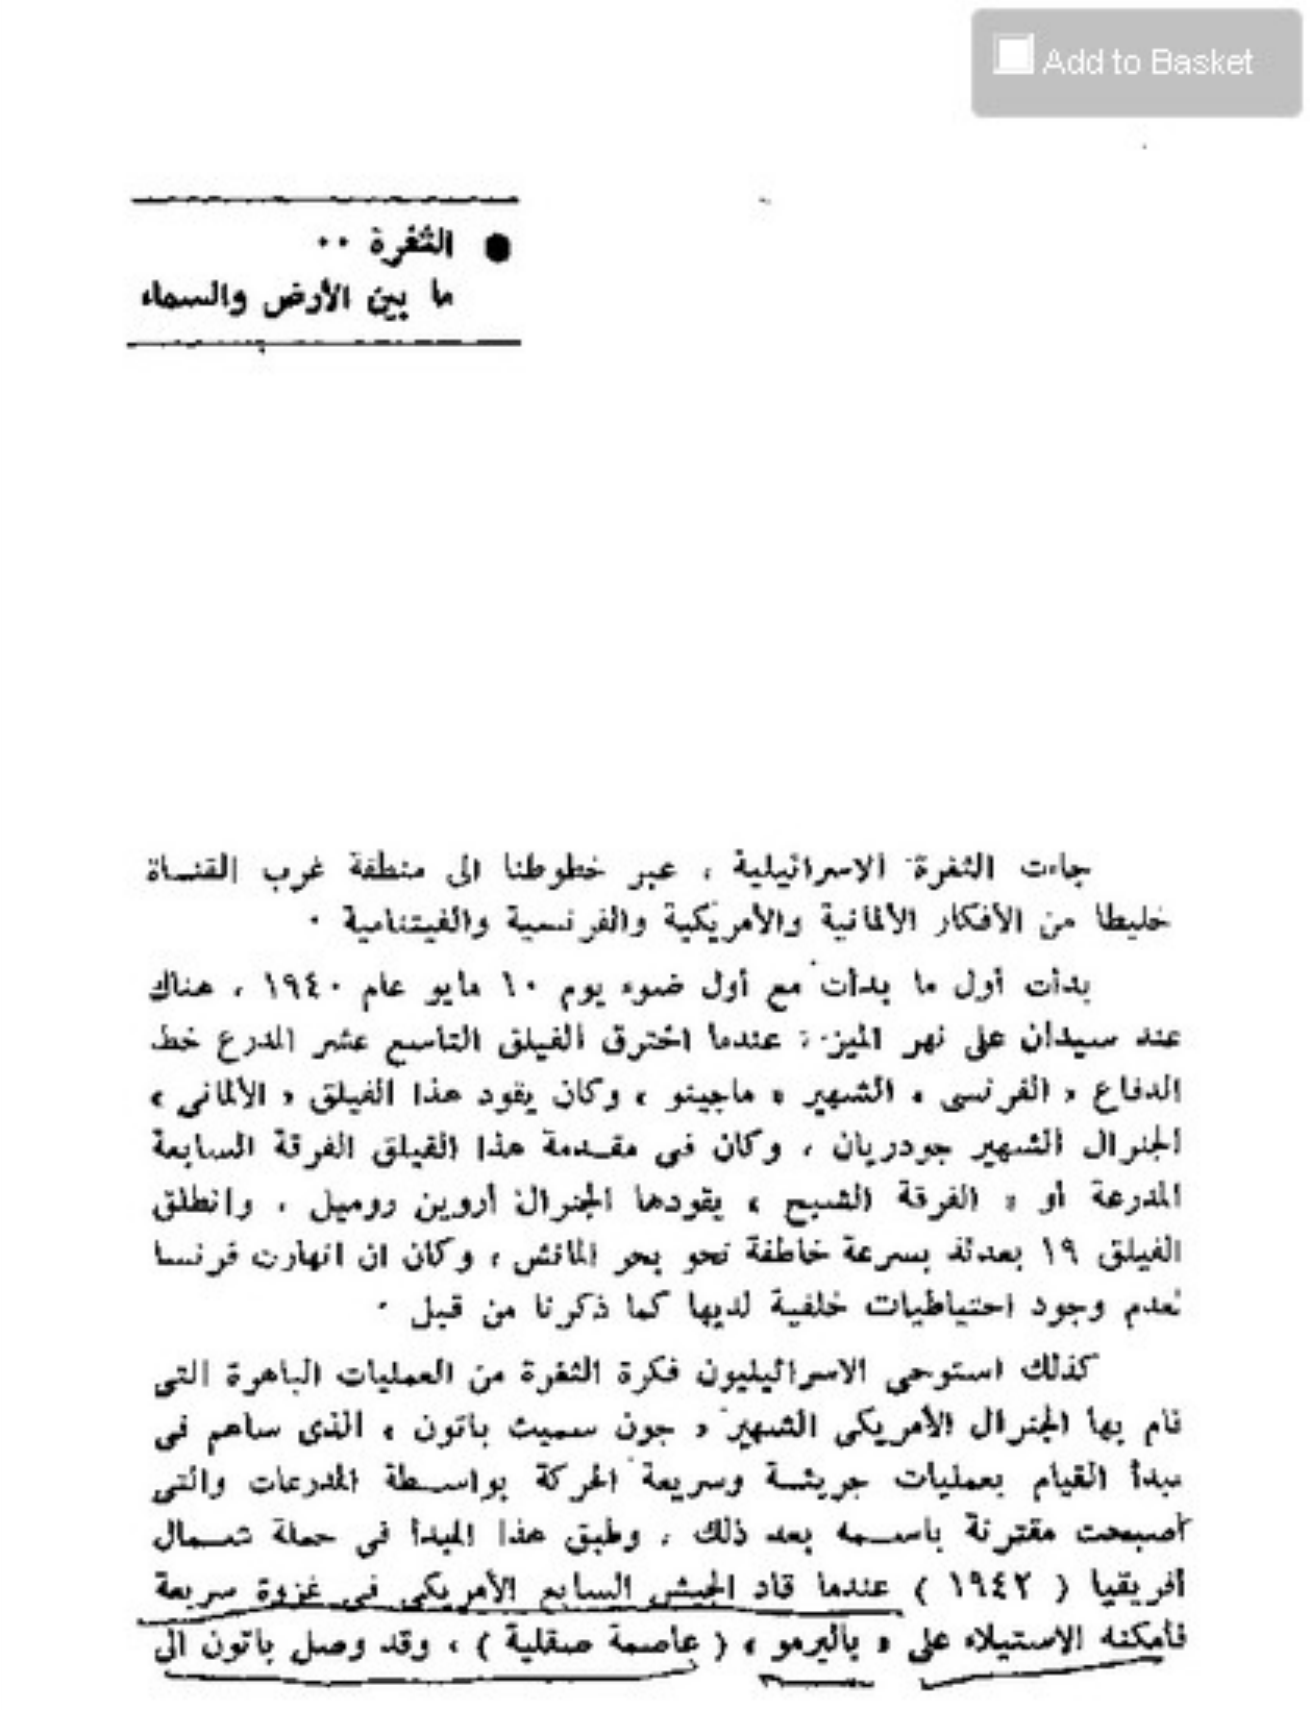 Add to Basket
● الثغرة ٠٠
ما بين الأرض والسماء
جاءت الثغرة الاسرائيلية ، عبر خطوطنا الى منطقة غرب القناة
خليطا من الأفكار الألمانية والأمريكية والفرنسية والفيتنامية ٠
بدأت أول ما بدأت مع أول ضوء يوم ١٠ مايو عام ١٩٤٠ ، هناك
عند سيدان على نهر الميز ، عندما اخترق الفيلق التاسع عشر المدرع خط
الدفاع « الفرنسى » الشهير « ماجينو » وكان يقود هذا الفيلق « الألمانى »
الجنرال الشهير جودريان ، وكان فى مقدمة هذا الفيلق الفرقة السابعة
المدرعة أو « الفرقة الشبح » يقودها الجنرال أروين روميل ، وانطلق
الفيلق ١٩ بعدئذ بسرعة خاطفة نحو بحر المانش ، وكان ان انهارت فرنسا
لعدم وجود احتياطيات خلفية لديها كما ذكرنا من قبل ٠
كذلك استوحى الاسرائيليون فكرة الثغرة من العمليات الباهرة التى
قام بها الجنرال الأمريكى الشهير « جون سميث باتون » الذى ساهم فى
مبدأ القيام بعمليات جريئة وسريعة الحركة بواسطة المدرعات والتى
أصبحت مقترنة باسمه بعد ذلك ، وطبق هذا المبدأ فى حملة شمال
أفريقيا ( ١٩٤٢ ) عندما قاد الجيش السابع الأمريكى فى غزوة سريعة
فأمكنه الاستيلاء على « باليرمو » ( عاصمة صقلية ) ، وقد وصل باتون الى